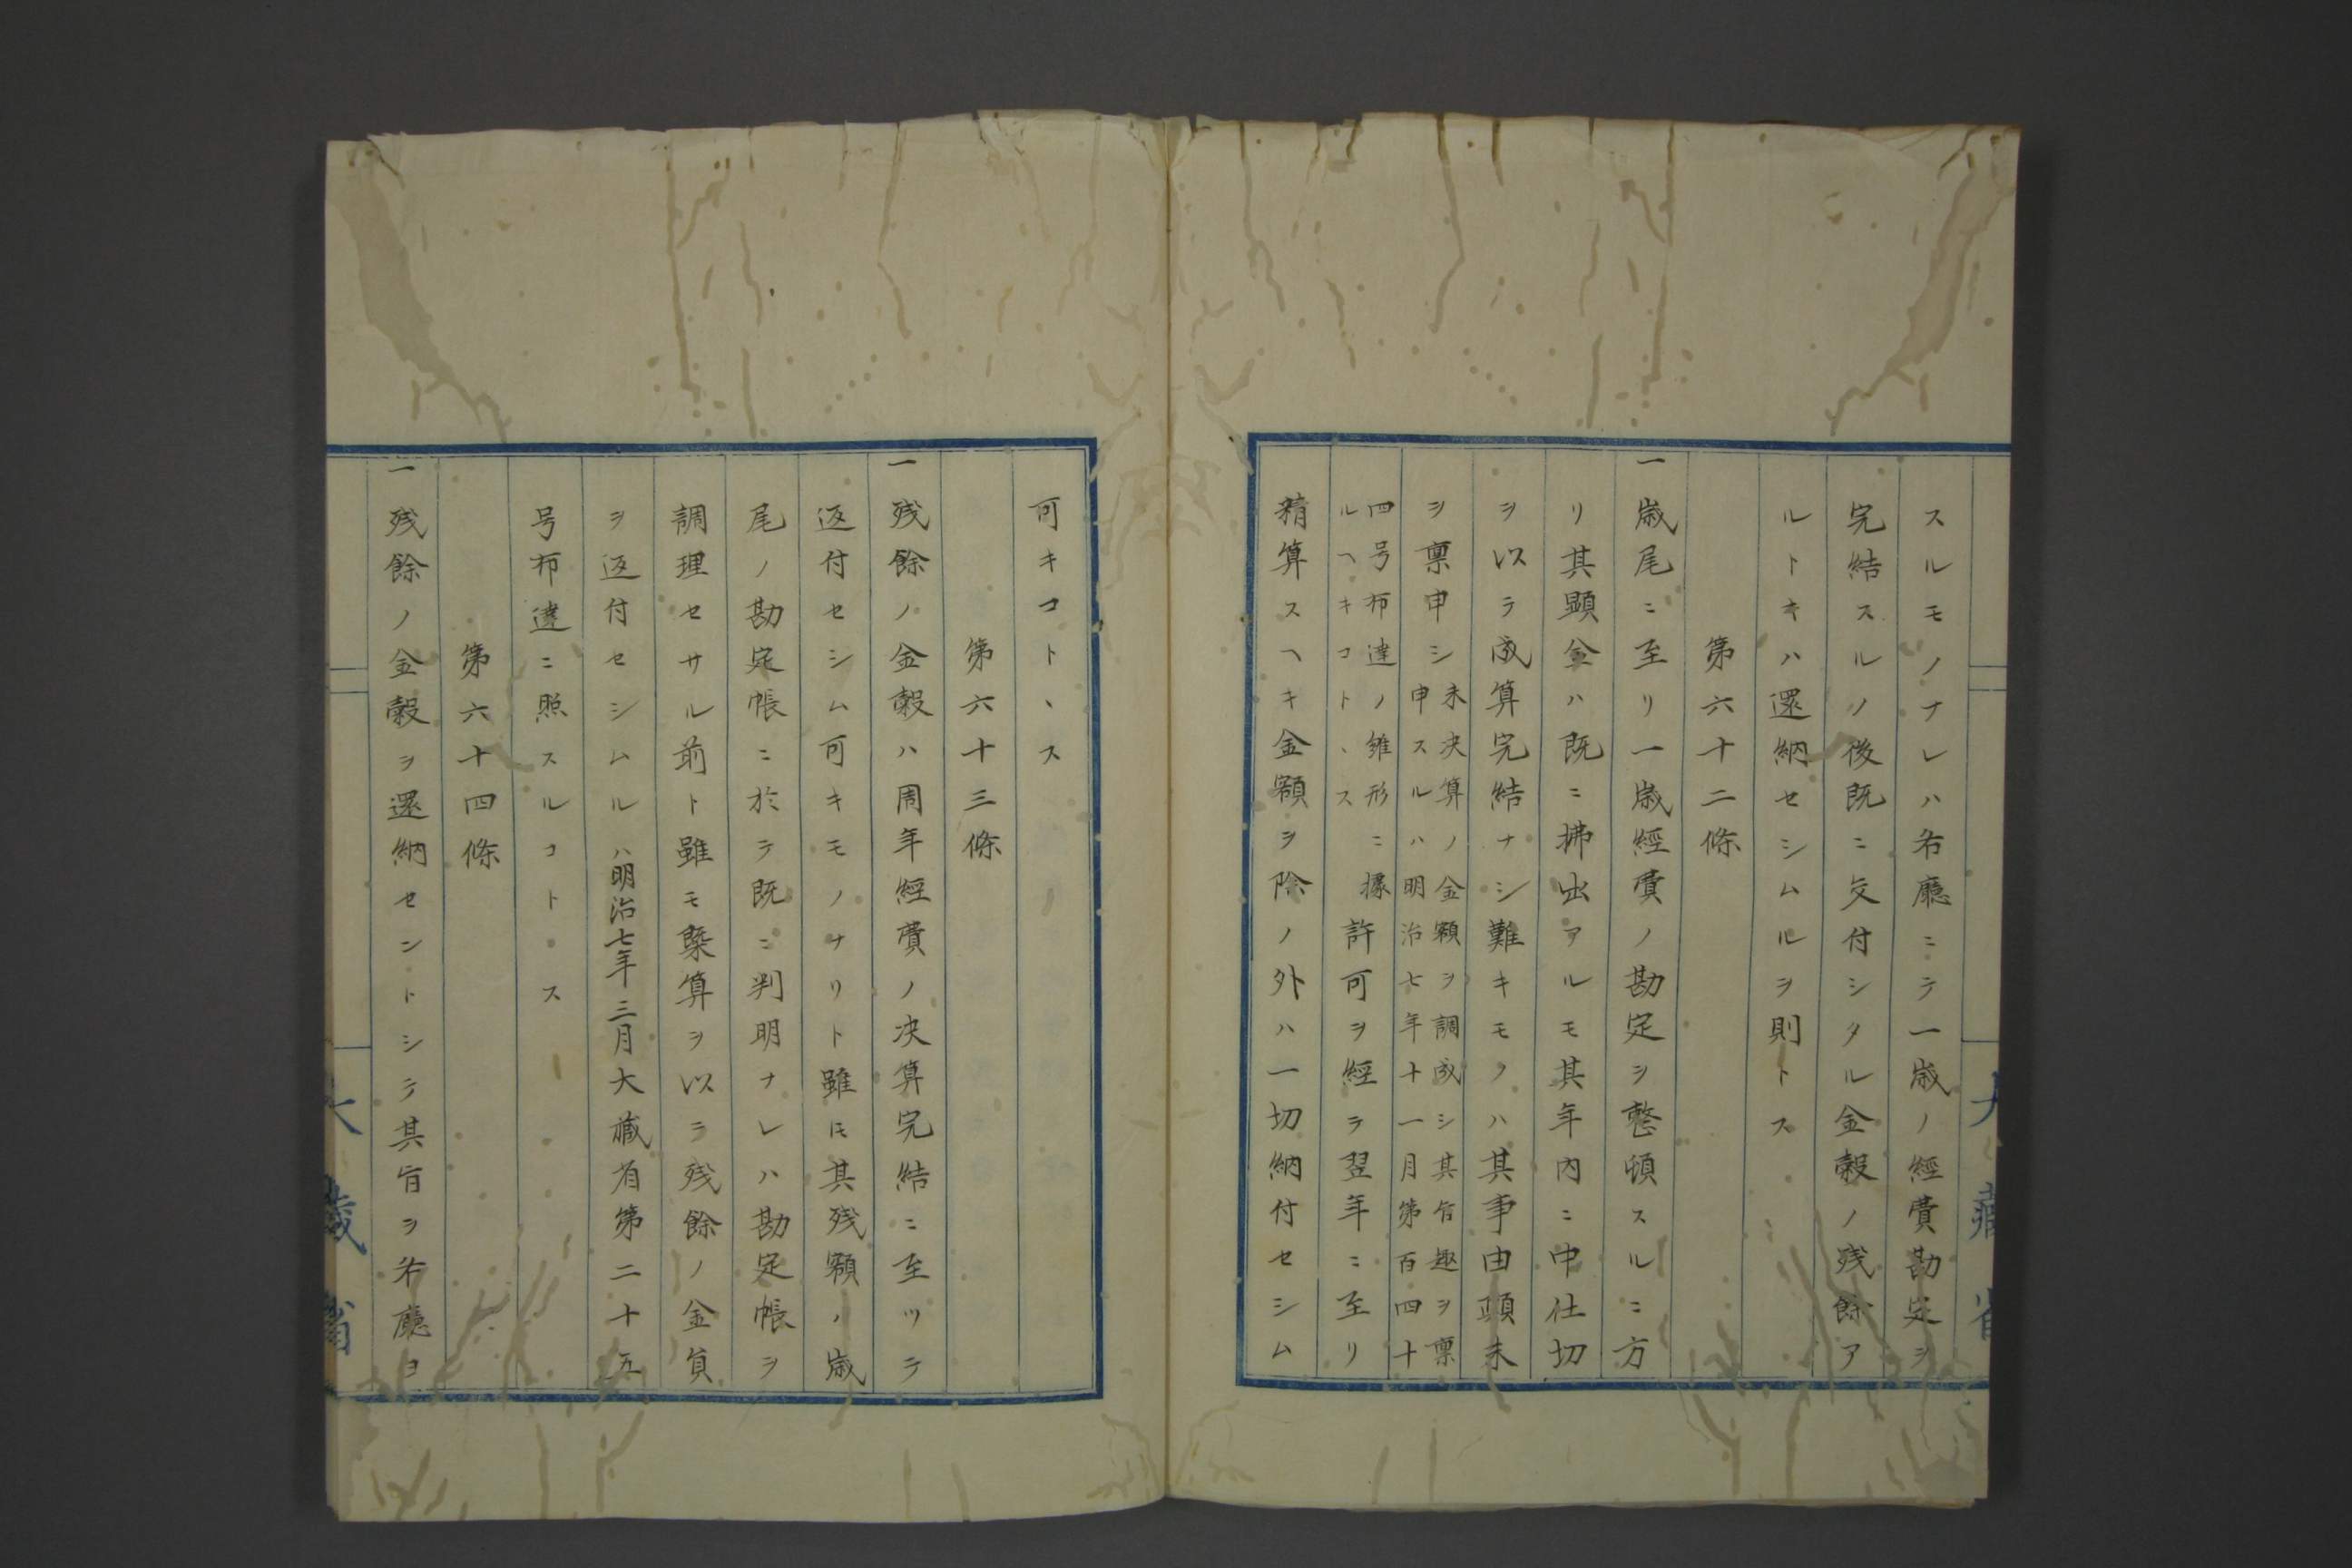 スルモノナレハ各廳ニテ一歳ノ經費勘定ヲ
完結スルノ後既ニ交付シタル金穀ノ残餘ア
ルトキハ還納セシムルヲ則トス
第六十二條
一歳尾ニ至リ一歳經費ノ勘定ヲ整頓スルニ方
リ其顕金ハ既ニ拂出アルモ其年内ニ中仕切
ヲ以テ成算完結ナシ難キモノハ其事由顛末
ヲ禀申シ未決算ノ金額ヲ調成シ其旨趣ヲ禀
申スルハ明治七年十一月第百四十
四号布達ノ雛形ニ據
ルヘキコトヽス
許可ヲ經テ翌年ニ至リ
精算スヘキ金額ヲ除ノ外ハ一切納付セシム
可キコトヽス
第六十三條
一残餘ノ金穀ハ周年經費ノ决算完結ニ至ツテ
返付セシム可キモノナリト雖𪜈其残額ノ歳
尾ノ勘定帳ニ於テ既ニ判明ナレハ勘定帳ヲ
調理セサル前ト雖モ槩算ヲ以テ残餘ノ金員
ヲ返付セシムルハ明治七年三月大藏省第二十五
号布達ニ照スルコトヽス
第六十四條
一残餘ノ金穀ヲ還納セントシテ其旨ヲ各廳ヨ
大藏省
大藏省